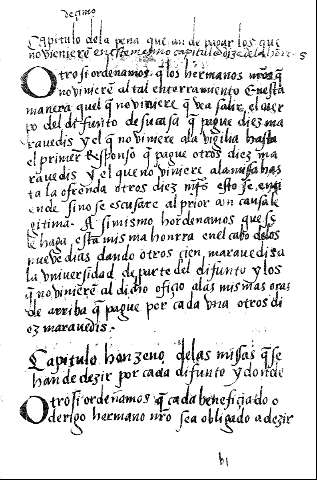 decimo
Capitulo dela pena que an de pagar los que
no viniere en este mesmo capitulo dize de la honrras
Otrosi ordenamos q los hermanos nros q
no viniere al tal enterramiento En esta
manera quel q no viniere q vea salir el cuer
po del difunto de su casa q pague diez ma
ravedis y el q no viniere ala vigilia hasta
el primer Responso q pague otros diez ma
ravedis y el que no viniere ala missa has
ta la ofrenda otros diez mrs esto se enti
ende sino se escusare al prior con causa le
gitima. A simismo hordenamos que se
le haga esta misma honrra en el cabo delos
nueve dias dando otros cien maravedis a
la universidad de parte del difunto y los
q no viniere al dicho oficio alas mismas oras
de arriba q pague por cada vna otros di
ez maravedis.
Capitulo honzeno delas missas q se
han de dezir por cada difunto y donde
Otrosi ordenamos q cada beneficiado o
clerigo hermano nro sea obligado a dezir